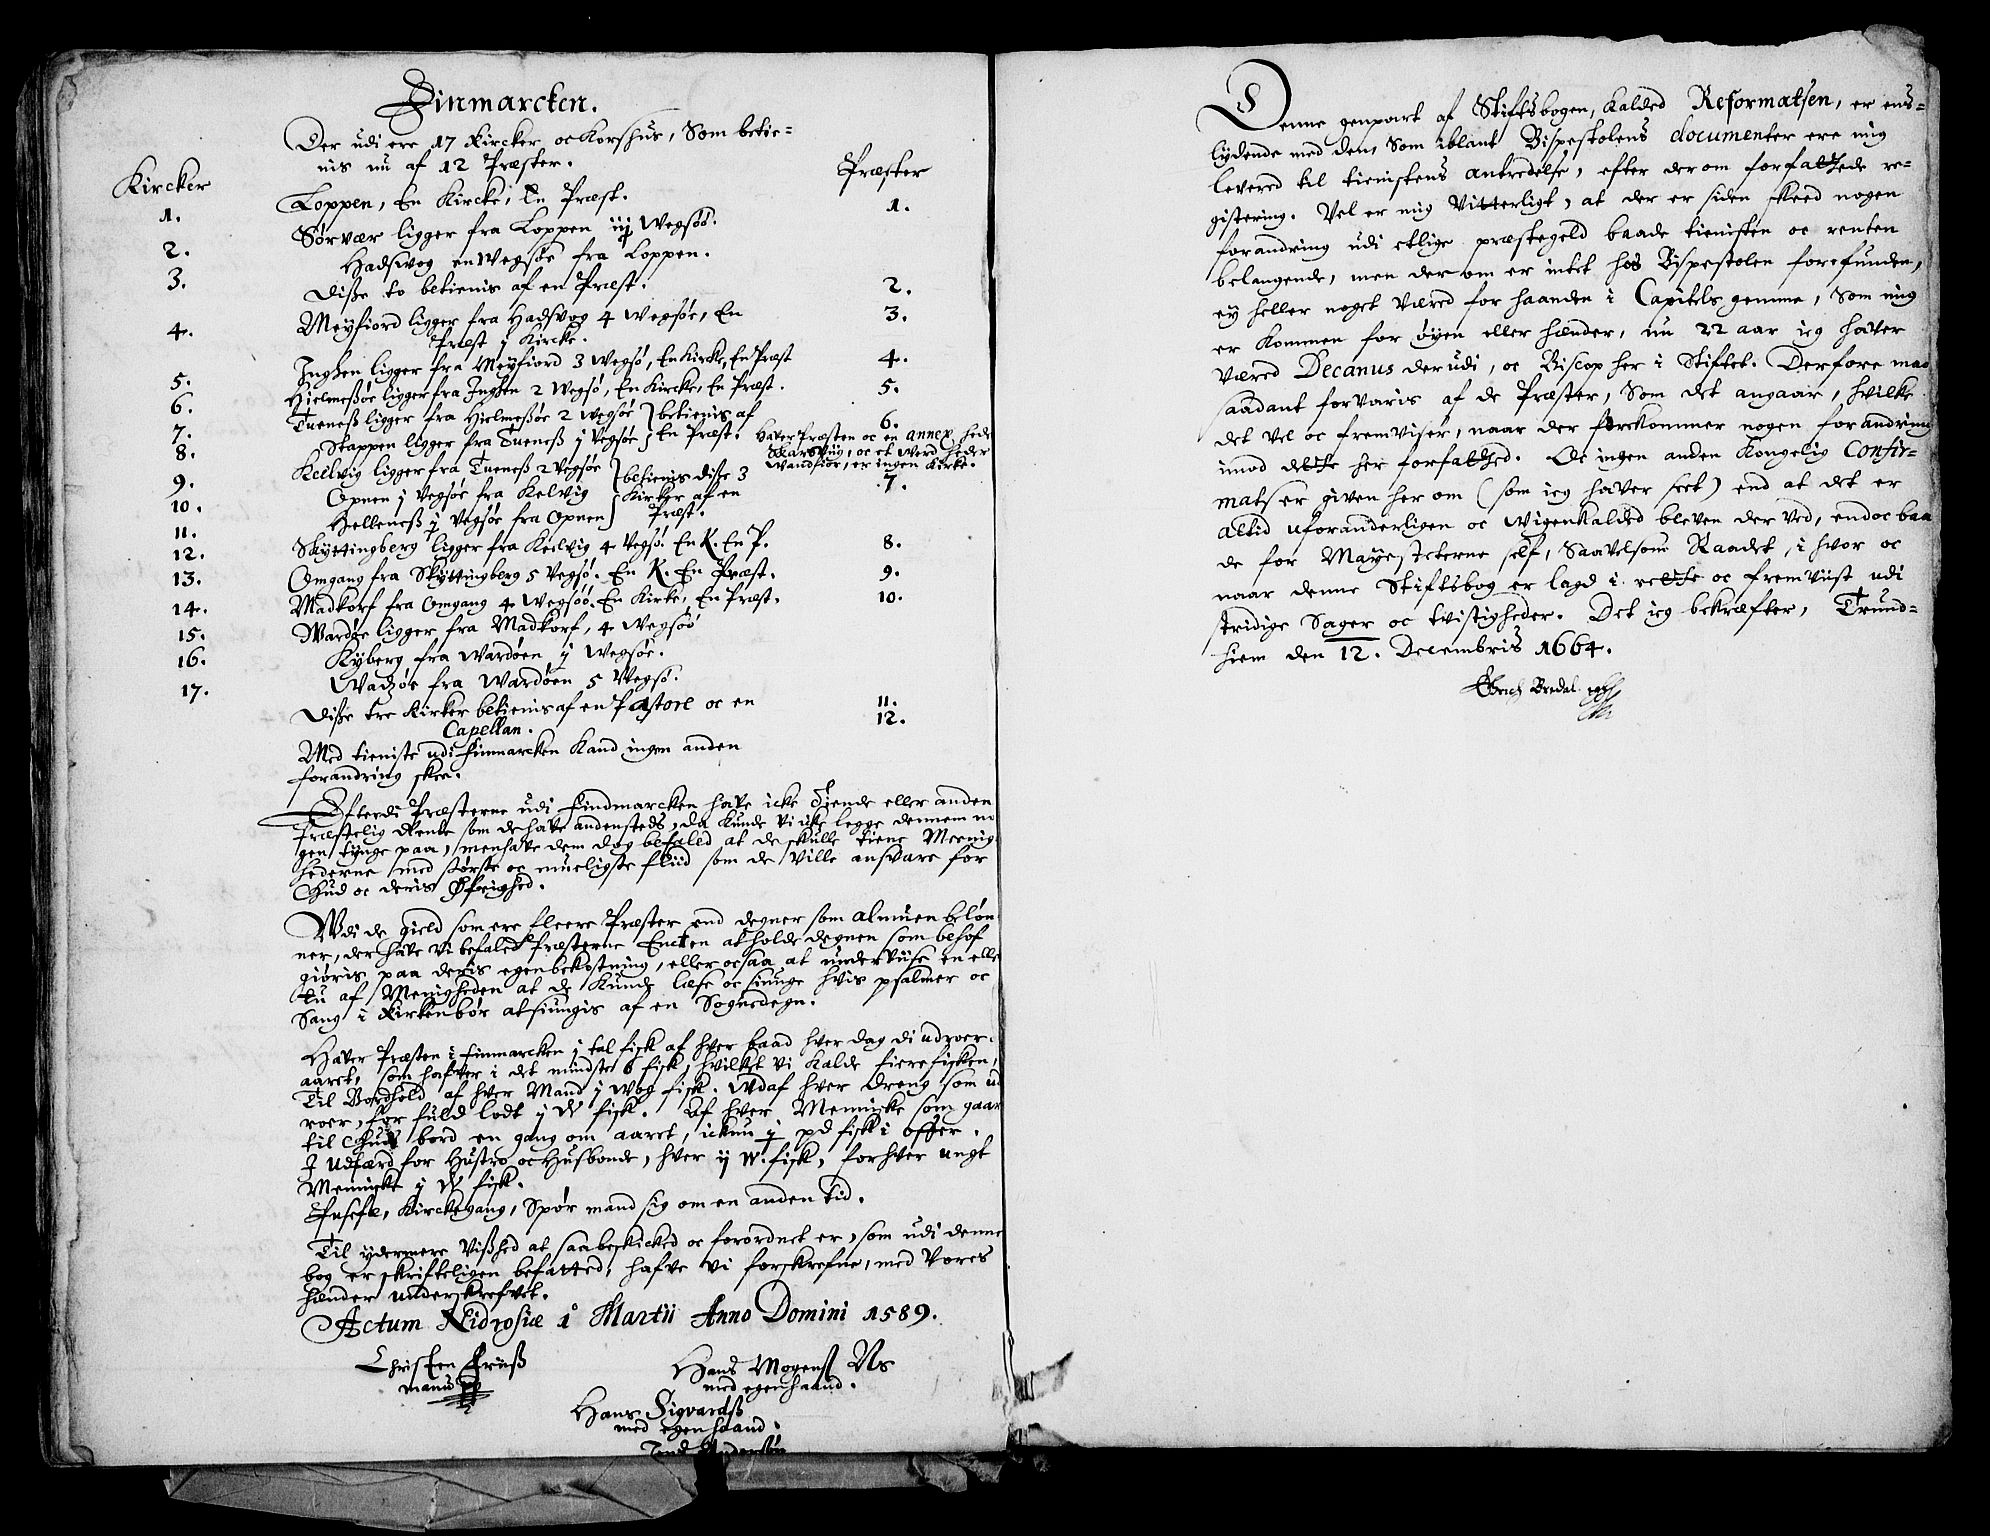 Finmarcken.
Der udi ere 17 Kircker oc Korshus, Som betie=
nis nu af 12 Præster.
Kircker
Præster
1. Loppen, En Kircke, En Præst. 1.
2. Sørvær ligger fra Loppen iij Wegsöö.
3. Hadsvog en Wegsöe fra Loppen.
Disse to betienis af en Præst. 2.
4. Meyfiord ligger fra Hadsvog 4 Wegsøe, En 3.
Præst j Kircke.
5. Inghen ligger fra Meyfiord 3 Wegsö, En Kirke, En Præst 4.
6. Hielmessöe ligger fra Inghen 2 Wegsö, En Kircke, En Præst. 5.
7. Tueness ligger fra Hielmessöe 2 Wegsöe } betienis af 6.
8. Stappen ligger fra Tueness j Vegsöe } En Præst. Haver Præsten oc en annex, hede
Skarsviig, oc et Werd heder
Wandfior, er ingen Kirke.
9. Keilvig ligger fra Tueness 2 Vegsöe } betienis disse 3 7.
10. Opnen j Vegsöe fra Kelvig } Kirker af en
11. Helleness j Vegsöe fra Opnen } Præst.
12. Skyttingberg ligger fra Keilvig 4 Vegsö. En K. En P. 8.
13. Omgang fra Skyttingberg 5 Vegsö. En K. En Præst. 9.
14. Madkorf fra Omgang 4 Wegsöö. En Kirke, En Præst. 10.
15. Wardøe ligger fra Madkorf, 4 Wegsöö
16. Kyberg fra Wardöen j Wegsöe.
17. Wadzöe fra Wardöen 5 Vegsö.
Disse tre Kirker betienis af en Pastore oc en 11.
Capellan. 12.
Med tieniste udi Finmarcken Kand ingen anden
forandring skee.
Efterdi Præsterne udi Findmarcken have icke Tiende eller anden
Præstelig Rente som de have andensteds, da kunde vi icke legge dennem no
gen tynge paa, men have dem dog befaled at de skulle tiene Meenig
hederne med største oc mueligste fliid som de ville ansvare for
Gud oc deris Øfrighed.
Udi de gield som ere fleere Præster end degner som almuen beløn
ner, der have vi befaled Præsterne Enten at holde degnen som behof
giøris paa deris egen bekostning, eller ocsaa at underviise en elle
tu af Menigheden at de kunde læse oc siunge hvis psalmer oc
Sang i Kirken bør at siungis af en Sognedegn.
Haver Præsten i Finmarcken j tal fisk af hver baad hver dag di udroer
aaret, som hafver i det mindste 6 fisk, hvilket vi kalde fierefisken,
Til Bordhold af hver Mand j Wog fisk. Udaf hver dreng som ud
roer, for fuld lodt j W fisk. Af hver Menniske som gaar
til Guds bord en gang om aaret, ickun j pd fisk i offer.
I Udfærd for Hustro oc Husbonde, hver ij W. fisk, for hver ungt
Menniske j W fisk.
Jusefæ, Kirckegang, Spør mand sig om en anden tid.
Til ydermere Visshed at saa beskicked oc forordnet er, som udi denne
bog er skrifteligen befatted, hafve vi forskrefne, med Vores
hænder underskrefvet.
Actum Nidrosiæ 1 Martii Anno Domini 1589.
Christen Friiss
manu pp
Hans Mogenss Ns
med egen haand.
Hans Sigvardss
med egen haand.
Denne genpart af Stiftsbogen, kalded Reformatsen, er ens=
lydende med den, Som iblant Bispestolens documenter ere mig
levered til tienistens antredelse, efter derom forfattede re=
gistering. Vel er mig vitterligt, at der er siden skeed nogen
forandring udi etlige præstegeld baade tienisten oc renten
belangende, men derom er intet hos Bispestolen forefunden,
ey heller noget været for haanden i Capitels gemme, som mig
er kommen for øyen eller hænder, nu 22 aar ieg haver
væred Decanus derudi, oc Biscop her i Stiftet. Derfore maa
saadant forvaris af de Præster, Som det angaar, hvilke
det vel oc fremviser, naar der forekommer nogen forandring
imod dette her forfatted. Oc ingen anden Kongelig Confir=
mats er given herom (som ieg haver seet) end at det er
altid uforanderligen oc Wigenkalded bleven derved, endoc baa
de for Mayesteterne self, Saavelsom Raadet, i hvor oc
naar denne Stiftsbog er lagd i rette oc fremviist udi
stridige Sager oc tvistigheder. Det ieg bekræfter, Trund=
hiem den 12. Decembris 1664.
Erich Bredal